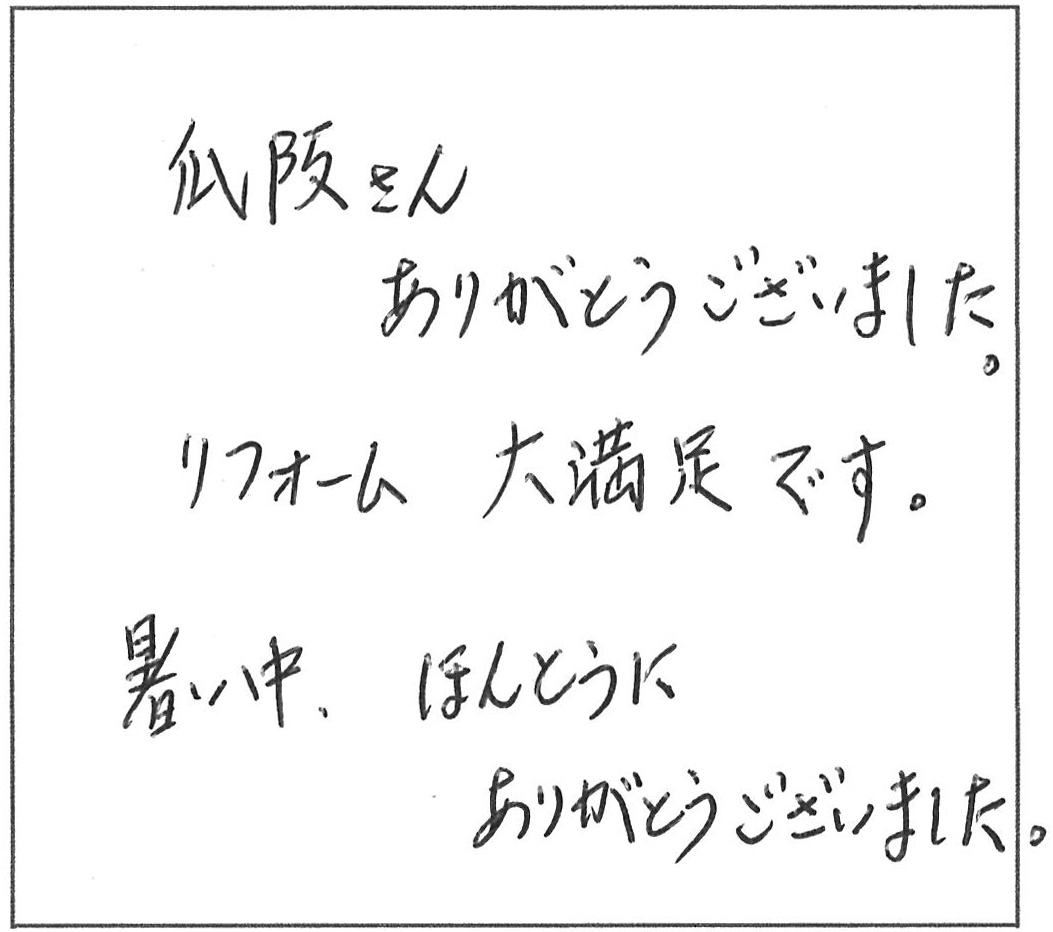 瓜阪さん
ありがとうございました。
リフォーム 大満足です。
暑い中、 ほんとうに
ありがとうございました。